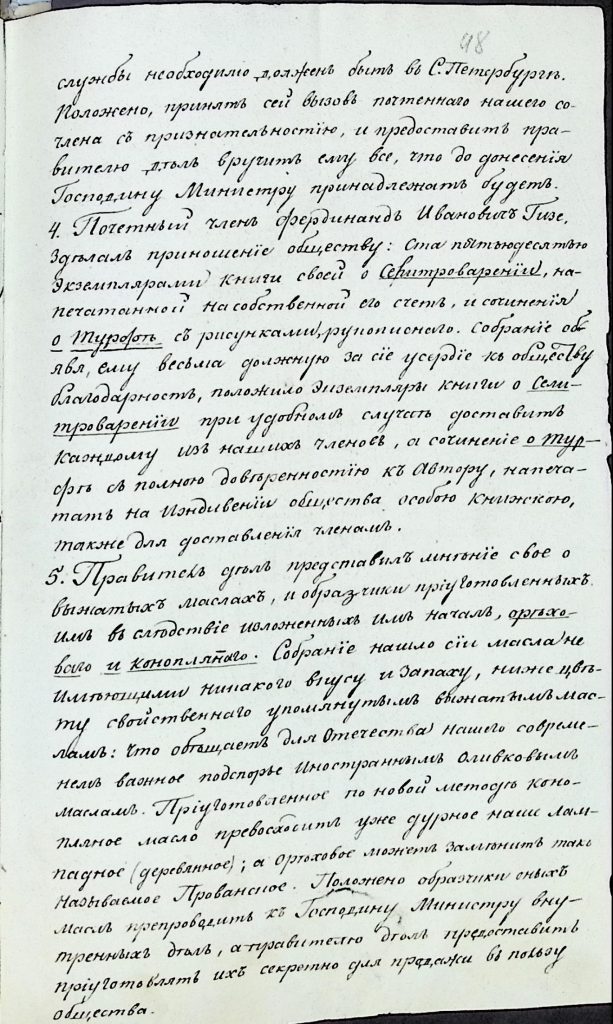 48
службы необходимо долженъ быть въ С. Петербургѣ.
Положено, принять сей вызовъ почтеннаго нашего со-
члена съ признательностію, и предоставить пра-
вителю дѣлъ вручить ему все, что до донесенія
Господину Министру принадлежать будетъ.
4. Почетный членъ Фердинандъ Ивановичъ Гизе,
здѣлалъ приношеніе обществу: ста пятьюдесятью
экземплярами книги своей о Селитровареніи, на-
печатанной на собственной его счетъ, и сочиненія
о Турфѣ съ рисунками, рукописнаго. Собраніе объ-
явя, ему весьма должную за сіе усердіе къ обществу
благодарность, положило экземпляры книги о Сели-
тровареніи при удобномъ случаѣ доставить
каждому изъ нашихъ членовъ, а сочиненіе о Тур-
фѣ съ полною довѣренностію къ Автору, напеча-
тать на Иждивеніи общества особою книжкою,
также для доставленія членамъ.
5. Правитель дѣлъ представилъ мнѣніе свое о
выжатыхъ маслахъ, и образчики пріуготовленныхъ
имъ въ слѣдствіе изложенныхъ имъ началъ, орѣхо-
ваго и коноплянаго. Собраніе нашло сіи масла не
имѣющими никакого вкусу и запаху, ниже цвѣ-
ту свойственнаго упомянутымъ выжатымъ мас-
ламъ: что обѣщаетъ для Отечества нашего современ-
немъ важное подспорье Иностраннымъ Оливковымъ
масламъ. Пріуготовленное по новой методѣ коно-
пляное масло превосходитъ уже дурное наше Лам-
падное (деревянное); а Орѣховое можетъ замѣнить такъ
называемое Прованское. Положено образчики оныхъ
маслъ препроводить къ Господину Министру вну-
тренныхъ дѣлъ, а правителю дѣлъ предоставить
пріуготовлять ихъ секретно для продажи въ пользу
общества.